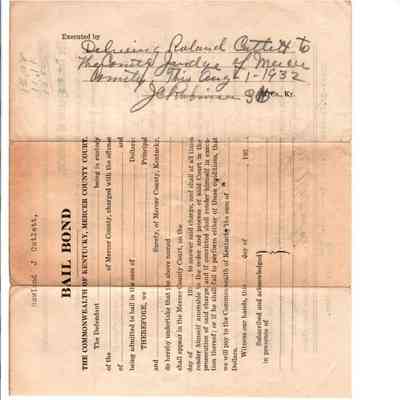 Executed by
Delivering Roland Catlett to
the County Judge of Mercer
County. This Aug 1-1932
J C Robinson
Ky.
Rowland J Catlett,
BAIL BOND
THE COMMONWEALTH OF KENTUCKY, MERCER COUNTY COURT.
The Defendant being in custody
of the of Mercer County, charged with the offense
of and
being admitted to bail in the sum of Dollars:
THEREFORE, we Principal
and Surety, of Mercer County, Kentucky,
do hereby undertake that the above named
shall appear in the Mercer County Court, on the
day of 19 to answer said charge, and shall at all times
render himself amenable to the order and process of said Court in the
prosecution of said charge, and if convicted shall render himself in execu-
tion thereof; or if he shall fail to perform either of these conditions, that
we will pay to the Commonwealth of Kentucky the sum of
Dollars.
Witness our hands, this day of 192
Subscribed and acknowledged
in presence of